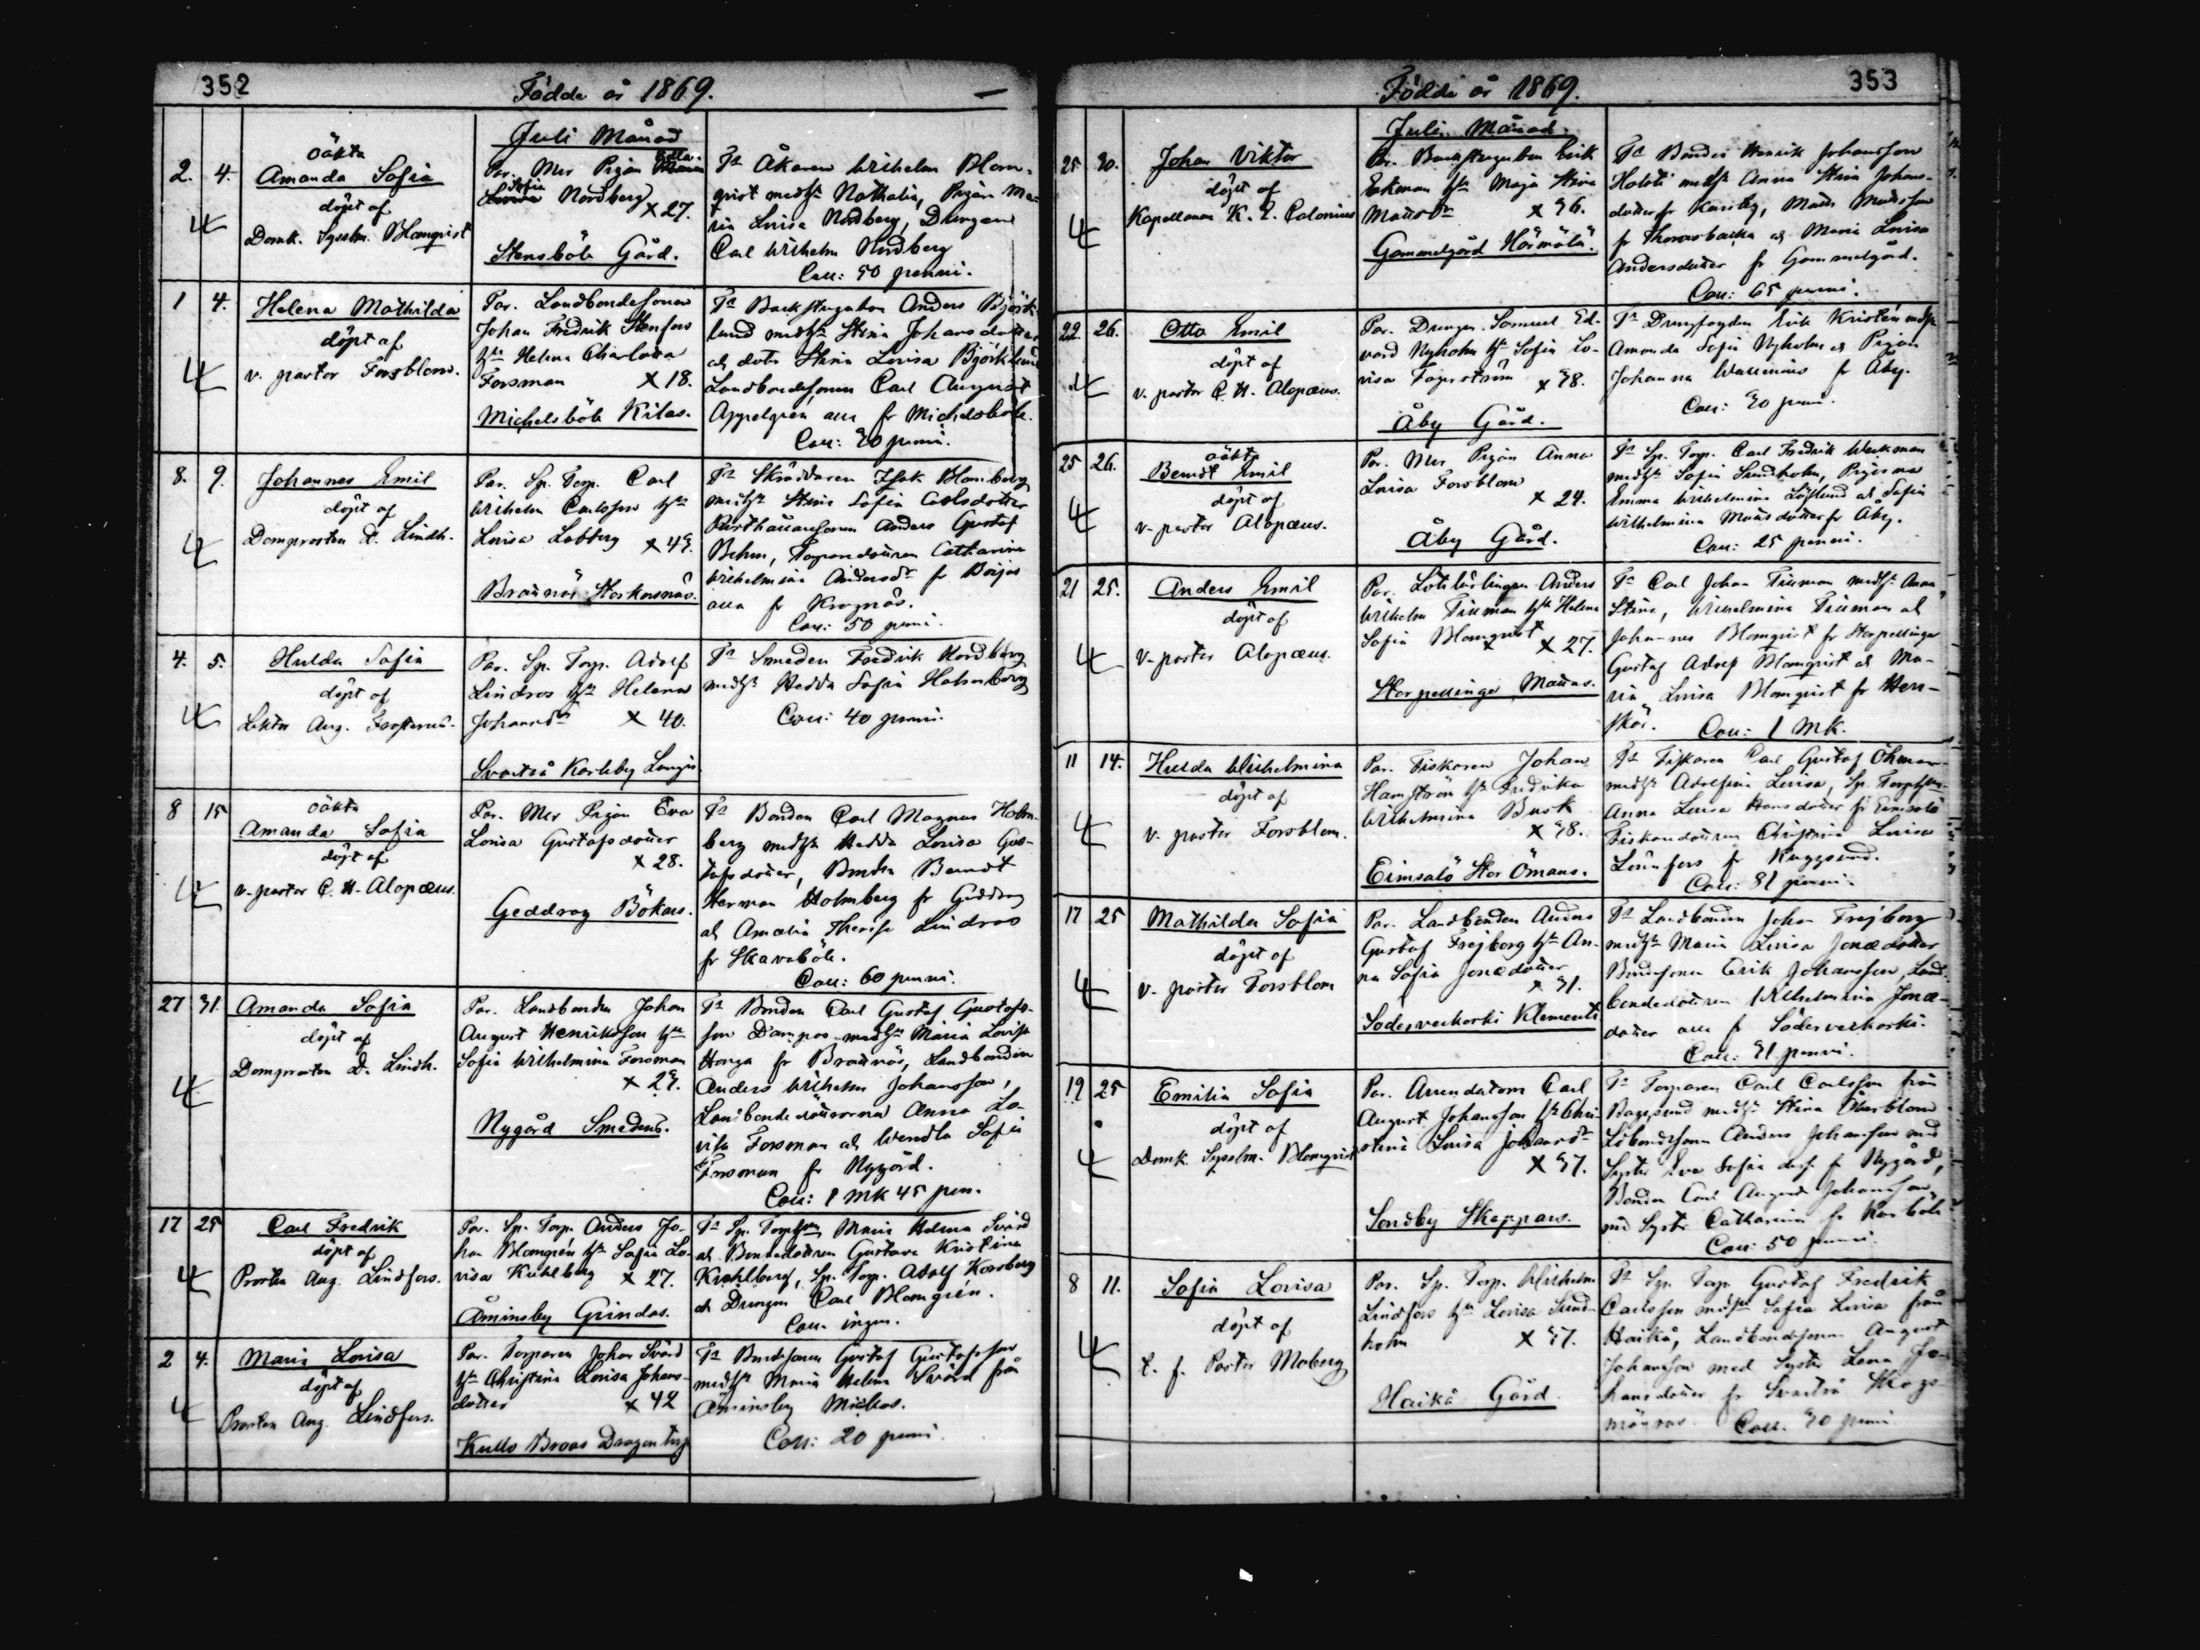 352
Födda år 1869.
Juli Månad
2. 4.
oäkta
Amanda Sofia
döpt af
Domk. Sysslm. Blomqvist
Par. Mor Pigan Edla
Sofia Nordberg
x 27.
Stensböle Gård.
Tt Åkaren Wilhelm Blom-
qvist medhu Nathalia, Pigan Ma-
ria Lovisa Nordberg, Drengen
Carl Wilhelm Nordberg
Coll: 50 penni.
1 4.
Helena Mathilda
döpt af
v. pastor Forsblom.
Par. Landbondesonen
Johan Fredrik Stenfors
hu Helena Charlotta
Forsman x 18.
Michelsböle Kilas.
Tt Backstugubon Anders Björk-
lund medhu Stina Johansdotter
och dotr Stina Lovisa Björklund
Landbondesonen Carl August
Appelgren alla fr Michelsböle.
Coll: 20 penni.
8. 9.
Johannes Emil
döpt af
Domprosten D. Lindh.
Par. Sp. Torp. Carl
Wilhelm Carlsson hu
Lovisa Lobberg x 43.
Tt Skräddaren Isak Blomberg
medhu Stina Sofia Carlsdotter
Anders Gustaf
Behm, Catharina
Wilhelmina Andersdr fr Börjas
alla fr Kroknäs.
Coll: 50 penni.
4. 5.
Hulda Sofia
döpt af
Lektor Aug. Frosterus.
Par. Sp. Torp. Adolf
Lindros hu Helena
Johansdr x 40.
Svartså Karleby Långis
Tt Smeden Fredrik Nordberg
medhu Hedda Sofia Holmberg
Coll: 40 penni.
8 15
oäkta
Amanda Sofia
döpt af
v. pastor C. H. Alopæus.
Par. Mor Pigan Eva
Lovisa Gustafsdotter
x 28.
Geddrag Bökars.
Tt Bonden Carl Magnus Holm-
berg medhu Hedda Lovisa Gus-
tafsdotter, Berndt
Herman Holmberg fr Geddrag
och Amalia Therese Lindros
fr Skavaböle.
Coll: 60 penni.
27 31
Amanda Sofia
döpt af
Domprosten D. Lindh.
Par. Landbonden Johan
August Henriksson hu
Sofia Wilhelmina Forsman
x 23.
Nygård Smedens.
Tt Bonden Carl Gustaf Gustafs-
son Dampas medhu Maria Lovisa
fr Braxnäs, Landbonden
Anders Wilhelm Johansson,
Landbondedöttrarna Anna Lo-
visa Forsman och Wendla Sofia
Forsman fr Nygård.
Coll: 1 mk 45 pen.
17 25
Carl Fredrik
döpt af
Prosten Aug. Lindfors.
Par. Sp. Torp. Anders Jo-
han Blomgrén hu Sofia Lo-
visa Kuhlberg x 27.
Åminsby Grindas.
Maria Helena Svärd
och Bondedottren Gustava Kristina
Kuhlberg, Sp. Torp. Adolf Korsberg
och Drengen Carl Blomgrén.
Coll. ingen.
2 4.
Maria Lovisa
döpt af
Prosten Aug. Lindfors.
Par. Torparen Johan Svärd
hu Christina Lovisa Johans-
dotter x 42
Kullo Broas Dragon torp
Tt Bondesonen Gustaf Gustafsson
medhu Maria Helena Svärd från
Åminsby Mickas.
Coll: 20 penni.
353
Födda år 1869.
Juli Månad.
25 30.
Johan Viktor
döpt af
Kapellanen K. E. Colonius
Par. Backstugubon Erik
Eckman hu Maja Stina
Matsdr x 36.
Gammelgård Härmälä.
Tt Bonden Henrik Johansson
medhu Anna Stina Johans-
dotter fr Karsby, Mats Matsson
fr Thorasbacka och Maria Lovisa
Andersdotter fr Gammelgård.
Coll: 65 penni.
22. 26.
Otto Emil
döpt af
v. pastor C. H. Alopæus.
Par. Drengen Samuel Ed-
vard Nyholm hu Sofia Lo-
visa Fagerström x 38.
Åby Gård.
Tt Drengfogden Erik Kristén medhu
Amanda Sofia Nyholm och Pigan
Johanna Wallenius fr Åby.
Coll: 20 penni.
25 26.
oäkta
Berndt Emil
döpt af
v. pastor Alopæus.
Par. Mor Pigan Anna
Lovisa Forsblom
x 24.
Åby Gård.
Tt Sp. Torp. Carl Fredrik Weckman
medhu Sofia Sundholm, Pigorna
Emma Wilhelmina Löflund och Sofia
Wilhelmina Matsdotter fr Åby.
Coll: 25 penni.
21 25.
Anders Emil
döpt af
v. pastor Alopæus.
Par. Anders
Wilhelm Tillman hu Helena
Sofia Blomqvist x 27.
Storpellinge Mattas.
Tt Carl Johan Tillman medhu Anna
Stina, Wilhelmina Tillman och
Johannes Blomqvist fr Storpellinge
Gustaf Adolf Blomqvist och Ma-
ria Lovisa Blomqvist fr Hen-
skär. Coll: 1 mk.
11 14.
Hulda Wilhelmina
döpt af
v. pastor Forsblom.
Par. Fiskaren Johan
Hamström hu Fredrika
Wilhelmina Busk
x 38.
Eimsalö Stor Ömans.
Tt Fiskaren Carl Gustaf Öhman
medhu Adolfina Lovisa,
Anna Lovisa Hansdotter fr Eimsalö
Fiskaredottren Christina Lovisa
Lönnfors fr Kuggsund.
Coll: 81 penni.
17 25
Mathilda Sofia
döpt af
v. pastor Forsblom
Par. Landbonden Anders
Gustaf Frejborg hu An-
na Sofia Jonædotter
x 31.
Söderveckoski Klements
Tt Landbonden Johan Frejborg
medhu Maria Lovisa Jonædotter
Bondesonen Erik Johansson, Land-
bondedottren Wilhelmina Jonæ-
dotter alla fr Söderveckoski.
Coll: 31 penni.
19 25
Emilia Sofia
döpt af
Domk. Sysslm. Blomqvist
Par. Arrendatorn Carl
August Johansson hu Chri-
stina Lovisa Johansdr
x 37.
Sondby Skeppars.
Tt Torparen Carl Carlsson från
Baggsund medhu Stina Österblom
Anders Johansson med
Syster Eva Sofia fr Nygård,
Bonden Carl August Johansson
med Syster Catharina fr Karsböle
Coll: 50 penni.
8 11.
Sofia Lovisa
döpt af
t. f. Pastor Moberg
Par. Sp. Torp. Wilhelm
Lindfors hu Lovisa Sund-
holm x 37.
Haikå Gård.
Tt Sp. Torp. Gustaf Fredrik
Carlsson medhu Sofia Lovisa från
Haikå, Landbondesonen August
Johansson med Syster Lena Jo-
hansdotter fr Svartså Skogs-
männas. Coll. 30 penni